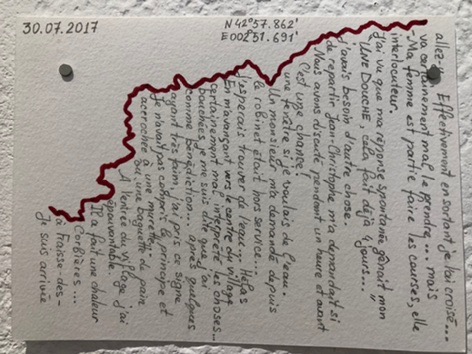 30.07.2017
N 42°57.862'
E 002°51.691'
Je suis arrivée
à Fraisse-des-
Corbières...
Il a fait une chaleur
épouvantable.
A l'entrée du village j'ai
vu une baguette de pain
accrochée à une murette.
Je n'avais pas compris le principe et
ayant très faim, j'ai pris ce signe
comme bénédiction... après quelques
bouchées, je me suis dite que j'ai
certainement mal interprété les choses...
En m'avançant vers le centre du village
j'espérais trouver de l'eau... Hélas
le robinet était hors service...
Un monsieur m'a demandé depuis
une fenêtre si je voulais de l'eau.
C'est une chance!
Nous avons discuté pendant un heure et avant
de repartir Jean-Christophe m'a demandait si
j'avais besoin d'autre chose.
"UNE DOUCHE, cela fait déjà 4 jours..."
J'ai vu que ma réponse spontanée gênait mon
interlocuteur.
- Ma femme est partie faire les courses, elle
va certainement mal le prendre... mais
allez-y. Effectivement en sortant je l'ai croisé...